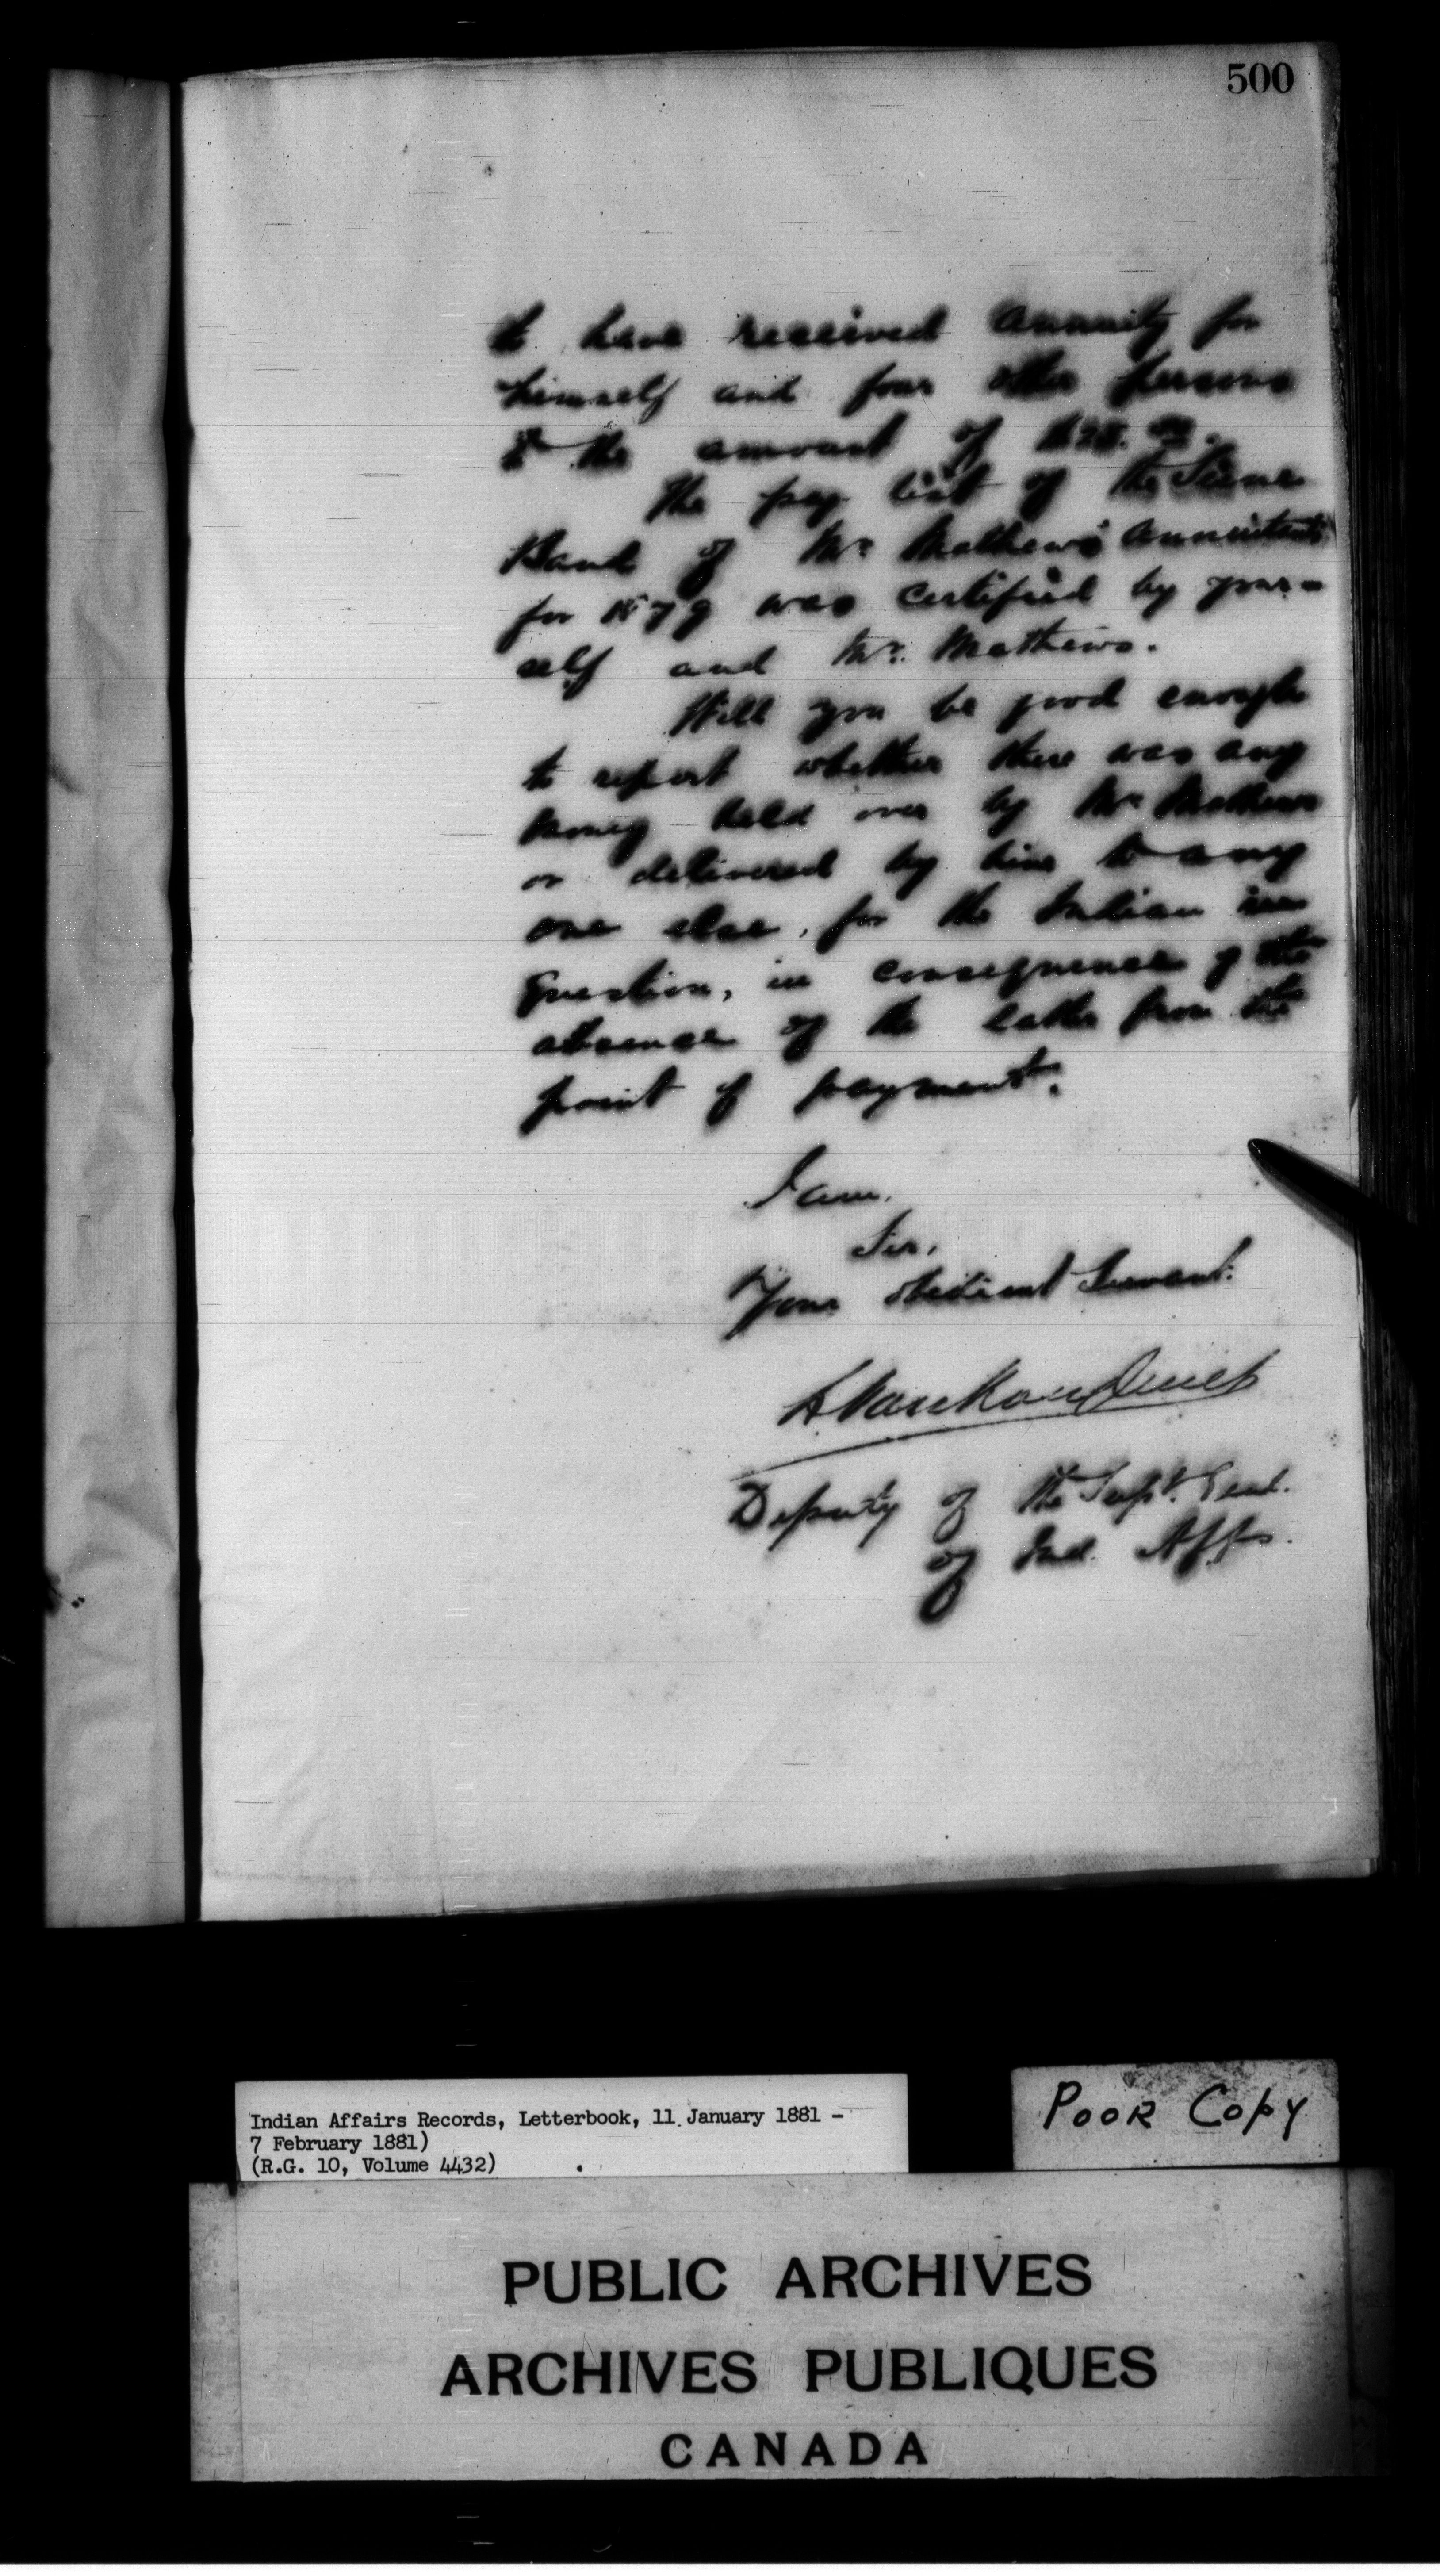 500
to have received annuity for
himself and four other persons
to the amount of
The pay list of the Seine
Band of Mr. Mathews' annuitants
for 1879 was certified by your=
self and Mr. Mathews.
Will you be good enough
to report whether there was any
money held over by Mr. Mathews
or delivered by him to any
one else, for the Indian in
question, in consequence of the
absence of the latter from the
point of payment.
I am,
Sir,
Your obedient Servant.
L. VanKoughnet
Deputy of the Supt. Genl.
of Ind. Affs.
Indian Affairs Records, Letterbook, 11 January 1881 -
7 February 1881)
(R.G. 10, Volume 4432)
Poor Copy
PUBLIC ARCHIVES
ARCHIVES PUBLIQUES
CANADA